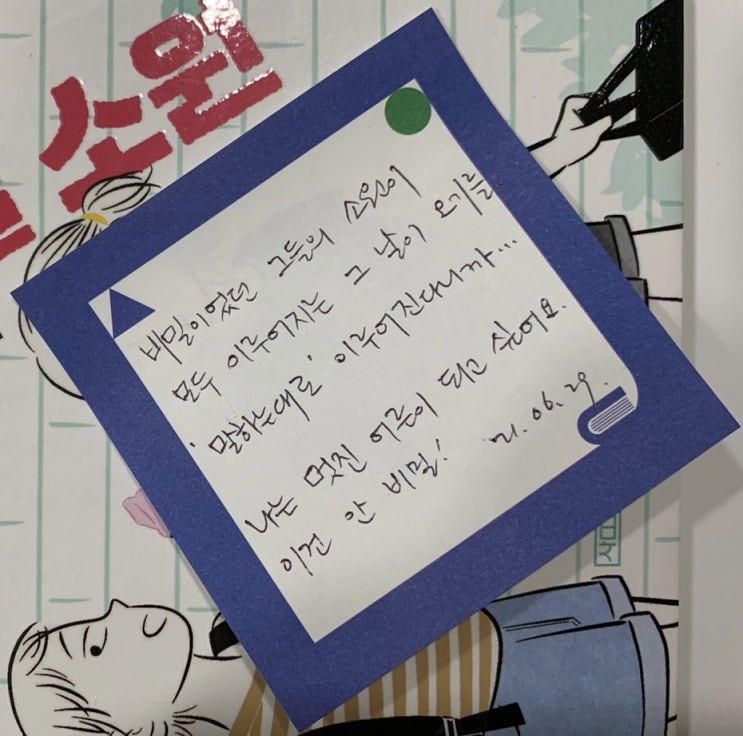 소원
비밀이었던 그들의 소원이
모두 이루어지는 그 날이 오기를
'말하는대로' 이루어진다니까...
나는 멋진 어른이 되고 싶어요.
이건 안 비밀! 21.06.29.